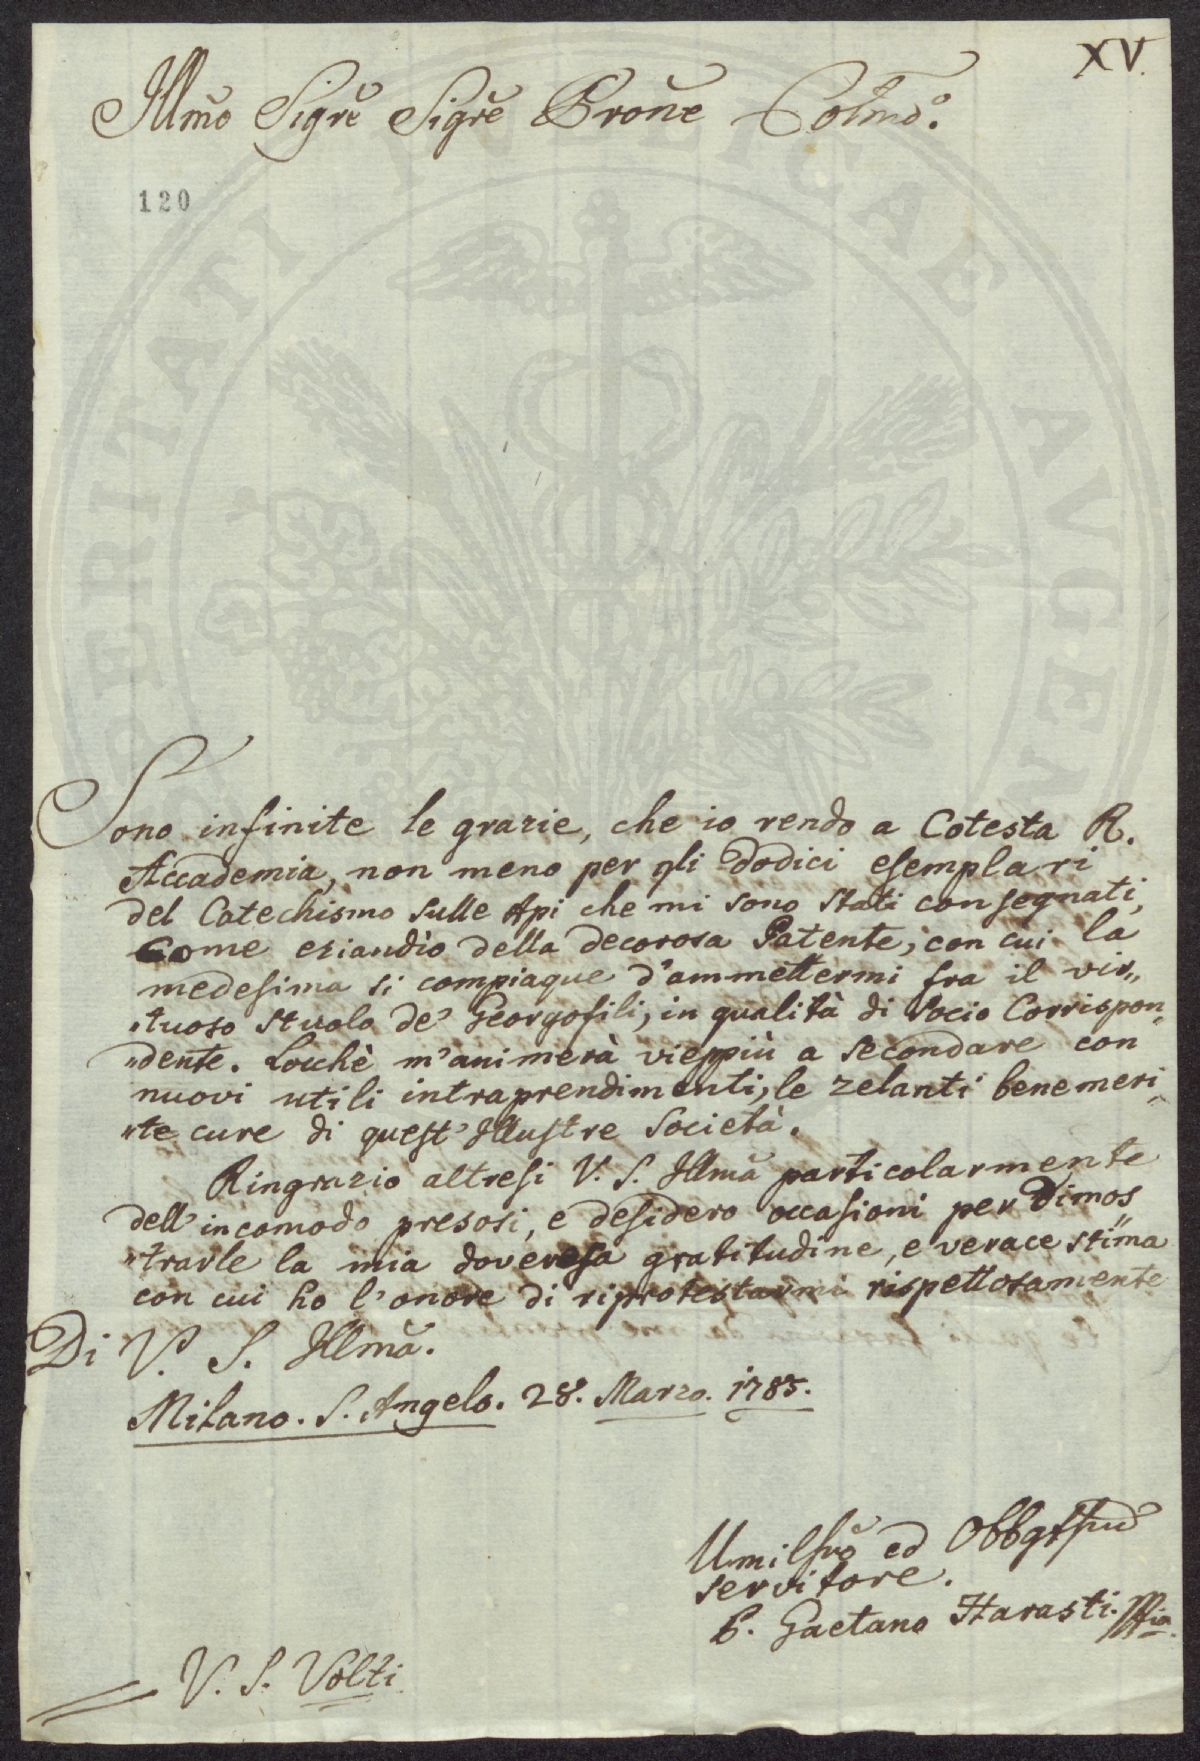 XV.
Illmo Sigre Sigre Prone Colmo.
120
Sono infinite le grazie, che io rendo a Cotesta R.
Accademia, non meno per gli Dodici esemplari
del Catechismo sulle Api che mi sono stati consegnati,
come eziandìo della decorosa Patente, con cui la
medesima si compiaque d'ammettermi fra il vir„
„tuoso stuolo de' Georgofili, in qualità di Socio Corrispon„
„dente. Locchè m'animerà vieppiù a secondare con
nuovi utili intraprendimenti, le zelanti benemeri„
„te cure di quest'Illustre Società.
Ringrazio altresi V. S. Illma particolarmente
dell'incomodo presosi, e desidero occasioni per Dimos„
„trarle la mia doverosa gratitudine, e verace stima
con cui ho l'onore di riprotestarmi rispettosamente
Di V. S. Illma.
Milano. S. Angelo. 28. Marzo. 1785.
Umilssmo ed Obbgtssmo
servitore.
P. Gaetano Harasti.
V. S. Volti
PERITATI PUBLICAE AUGEN